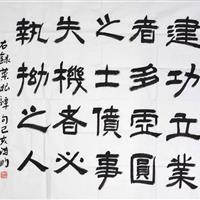 建功立業
者多虛圓
之士僨事
失機者必
執拗之人
右錄菜根譚句己亥